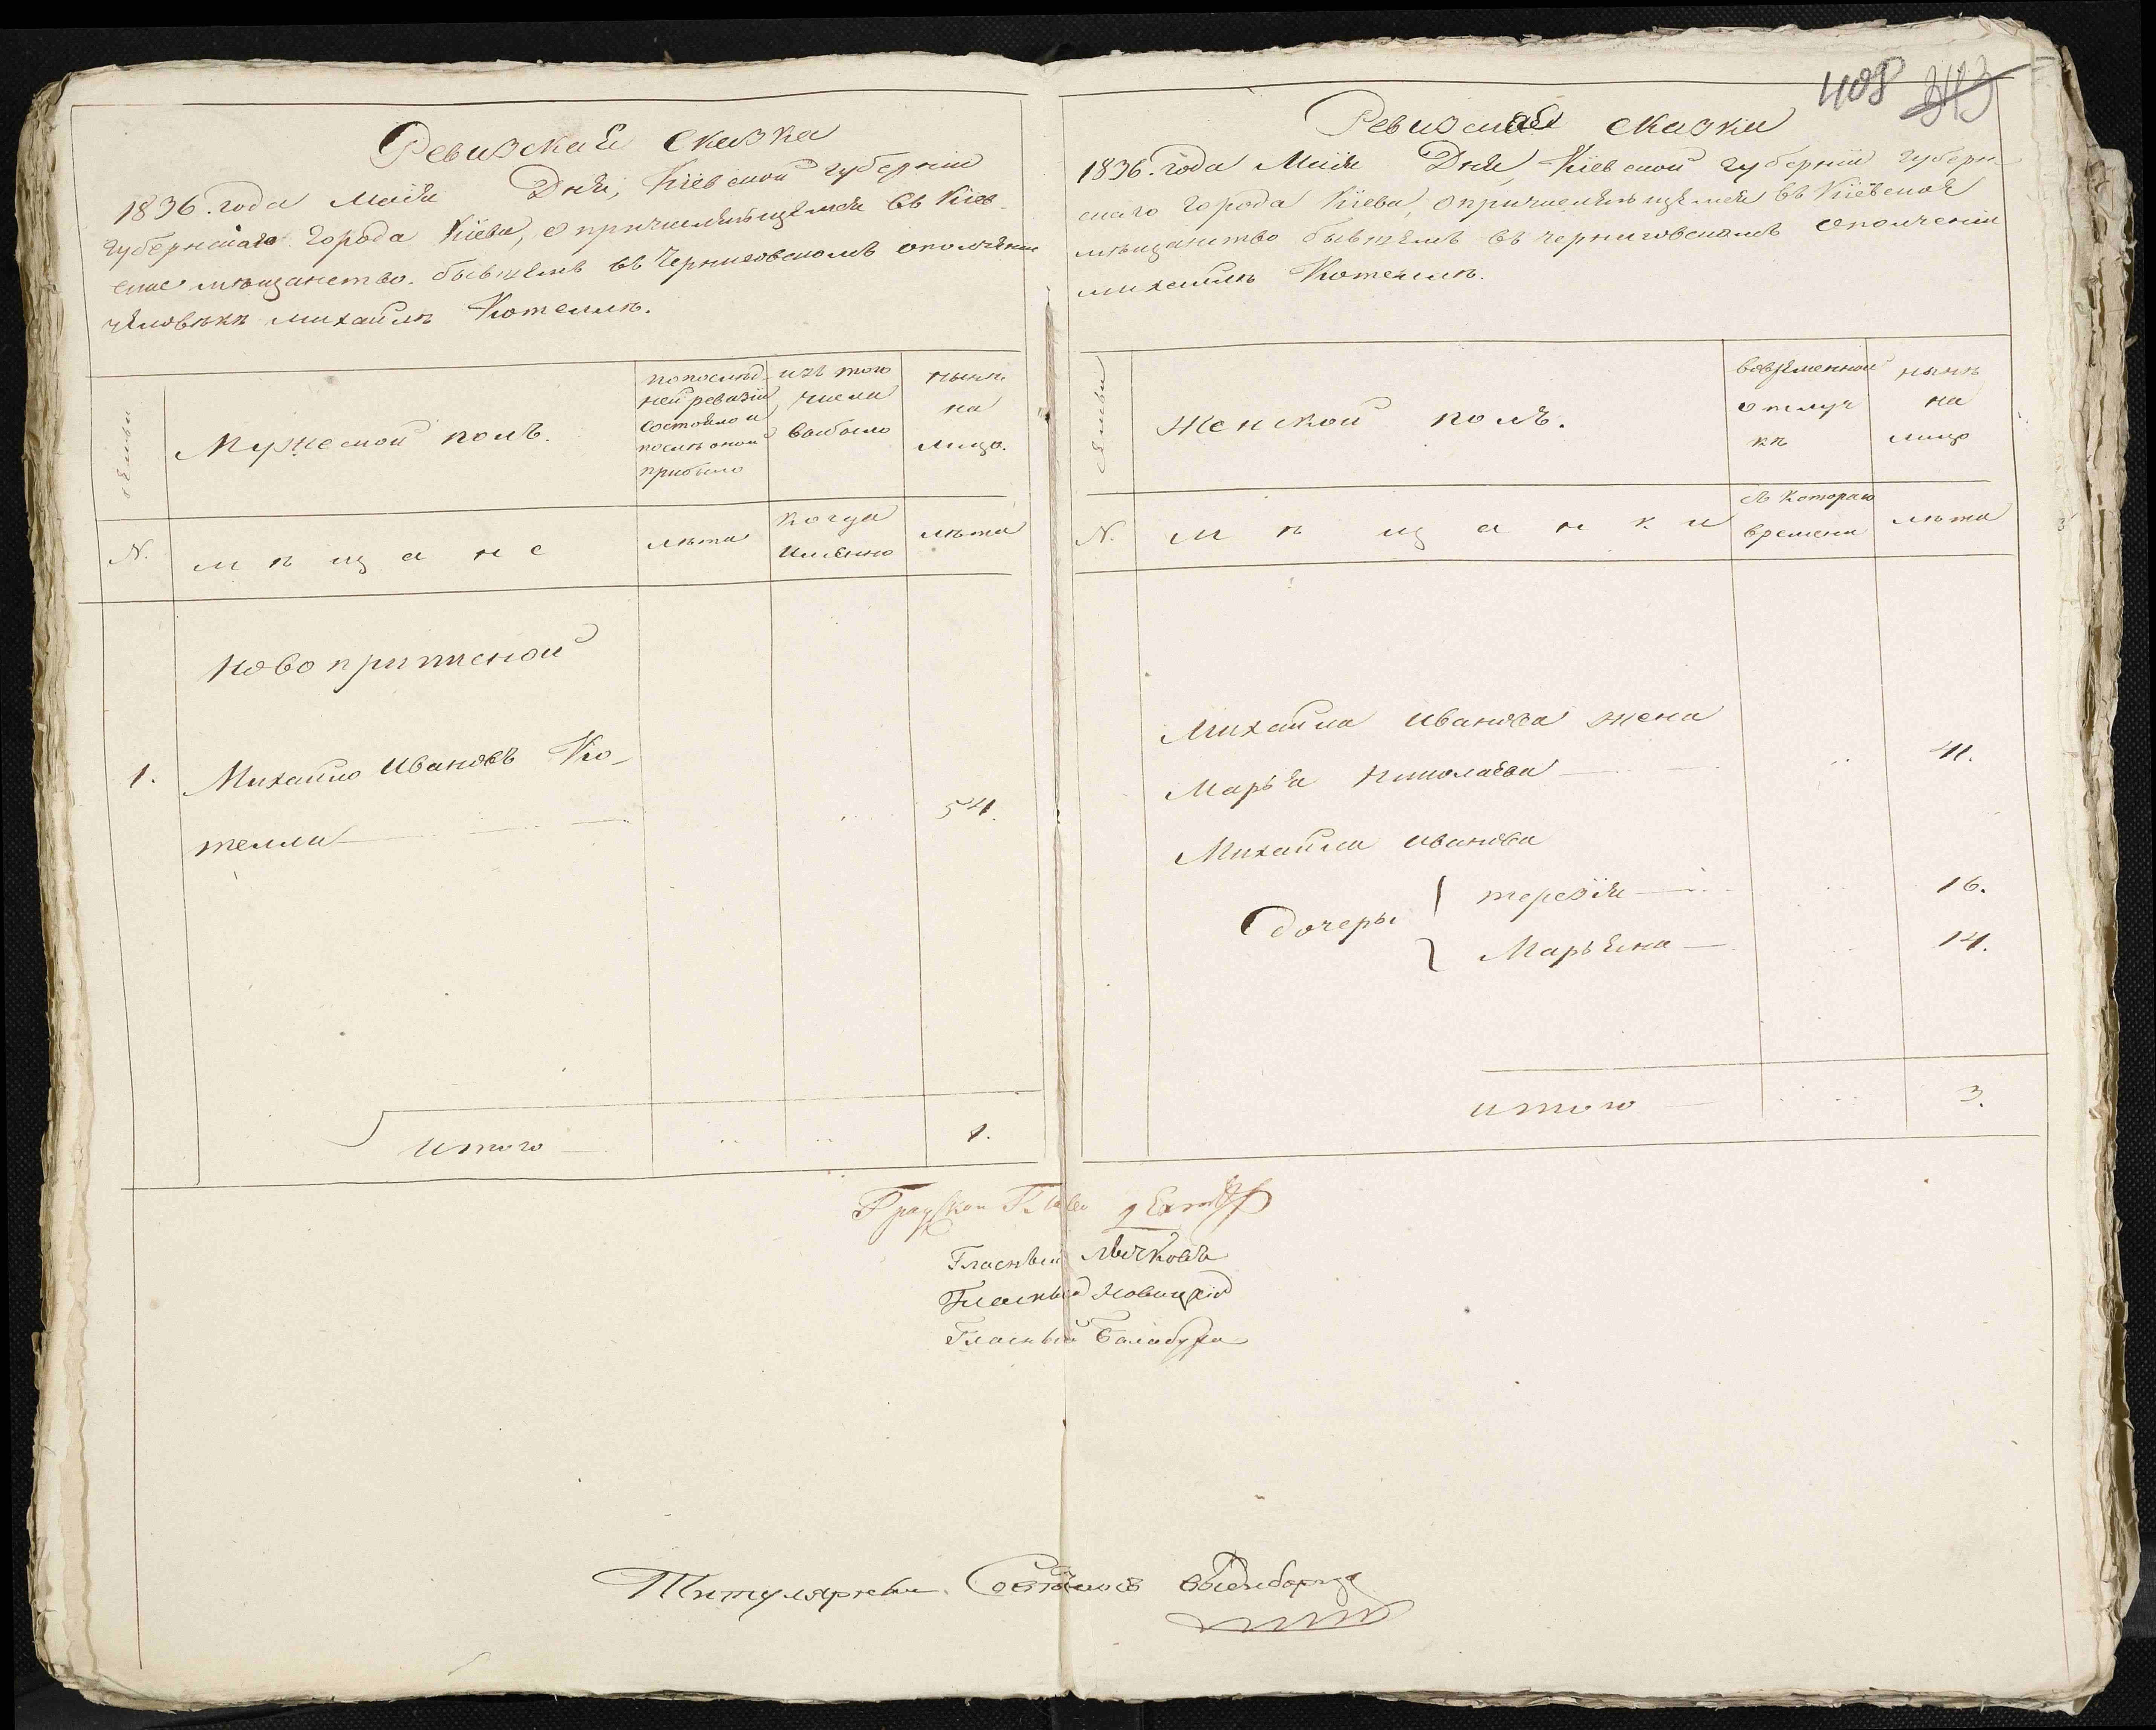 Ревизская Сказка
1836. года Маія Дня, Кіевской губерніи
губернскаго города Кіева, о причислѣвшемся въ Кіев-
ское мѣщанство. бывшемъ въ Черниговскомъ ополченіи
человѣкѣ михайлѣ Котеллѣ.
Семьи
Мужеской полъ.
попослѣд-
ней ревизіи
состояло и
послѣ оной
прибыло
изъ того
числа
выбыло
нынѣ
на
лицо.
N.
мѣщане
лѣта
когда
имянно
лѣта
новоприписной
1. Михайло Ивановъ Ко-
телла 54.
итого 1.
408 313
Ревизская сказка
1836. года Маія Дня, Кіевской губерніи губерн-
скаго города Кіева, о причислѣвшемся въ Кіевское
мѣщанство бывшемъ въ черниговскомъ ополченіи
михайлѣ Котеллѣ.
Семьи
Женской полъ.
вовремянной
отлуч
кѣ
нынѣ
на
лицо
N.
мѣщанки
съ котораго
времени
лѣта
Михайла Иванова жена
Марья Николаева 41.
Михайла Иванова
дочеры { терезія 16.
Марьяна 14.
итого 3.
Градской Глава
Гласный Лычковъ
Гласный Новицкій
Гласный Балабуха
Титулярный Совѣтникъ